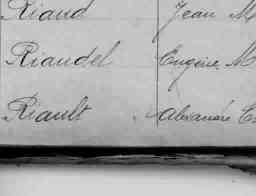 Riaud Jean M
Riaudel Eugène M
Riault Alexandre